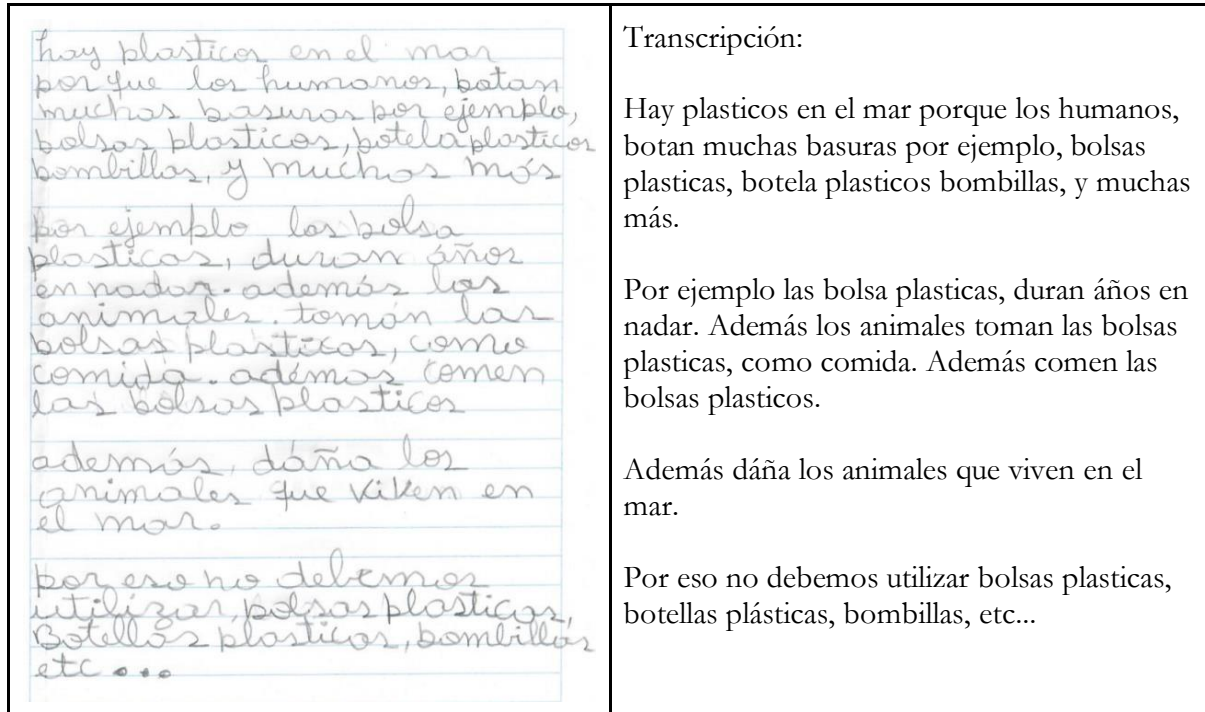 hay plasticos en el mar
por que los humanos, botan
muchas basuras por ejemplo,
bolsas plasticos, botela plasticos
bombillas, y muchas más
por ejemplo las bolsa
plasticas, duran áños
en nadar. además los
animales. tomán las
bolsas plasticas, como
comida. adémas comen
las bolsas plasticos
además, dáña los
animales que viven en
el mar.
por eso no debemos
utilizar, bolsas plasticas,
Botellas plasticos, bombillas
etc...
Transcripción:
Hay plasticos en el mar porque los humanos,
botan muchas basuras por ejemplo, bolsas
plasticas, botela plasticos bombillas, y muchas
más.
Por ejemplo las bolsa plasticas, duran áños en
nadar. Además los animales toman las bolsas
plasticas, como comida. Además comen las
bolsas plasticos.
Además dáña los animales que viven en el
mar.
Por eso no debemos utilizar bolsas plasticas,
botellas plásticas, bombillas, etc...